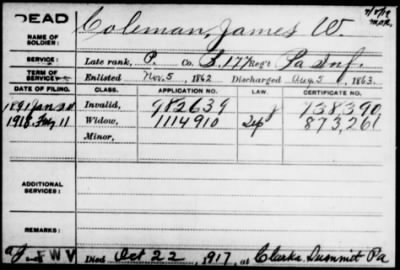 DEAD Coleman, James W.
NAME OF SOLDIER:
SERVICE: Late rank, P. Co. B, 177 Reg't Pa Inf.
TERM OF SERVICE Enlisted Nov. 5, 1862 Discharged Aug. 5, 1863.
DATE OF FILING. CLASS. APPLICATION NO. LAW. CERTIFICATE NO.
1891 Jan Invalid, 982639 738,390
1918 11 Widow, 1114910 873,261
Minor,
ADDITIONAL SERVICES:
REMARKS:
W V Died Oct 22, 1917, at Clarks Summit Pa